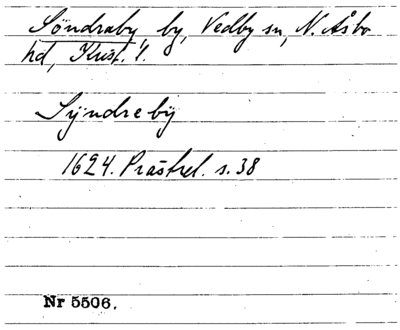 Söndraby, by, Vedby sn, N. Åsbo
hd, Krist. l.
Syndreby
1624. Prästrel. s. 38
Nr 5506.